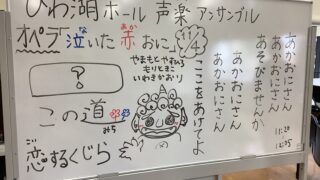 びわ湖ホール 声楽アンサンブル
オペラ 泣いた赤おに
あか
11/4
やまもとやすみち
もりときこ
いわきかおり
?
ここをあててよ
この道
みち
恋するくじら
こい
あかおにさん
あかおにさん
あそびませんか
あかおにさん
あかおにさん
11:20
12:05